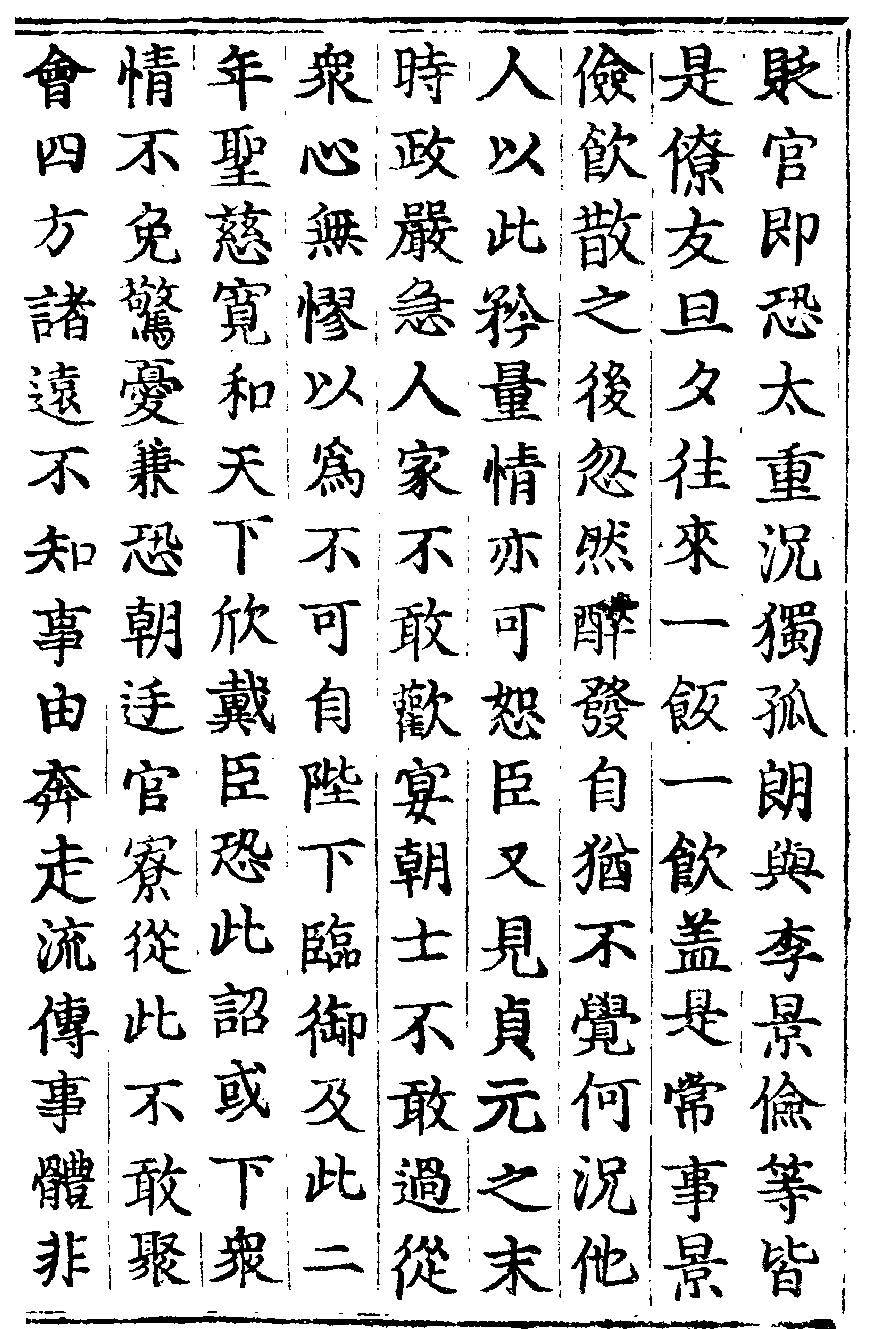 貶官即恐太重況獨孤朗與李景儉等皆
是僚友旦夕往來一飯一飲盖是常事景
儉飲散之後忽然醉發自猶不覺何況他
人以此矜量情亦可恕臣又見貞元之末
時政嚴急人家不敢歡宴朝士不敢過從
衆心無憀以爲不可自陛下臨御及此二
年聖慈寬和天下欣戴臣恐此詔或下衆
情不免驚憂兼恐朝廷官寮從此不敢聚
會四方諸遠不知事由奔走流傳事體非